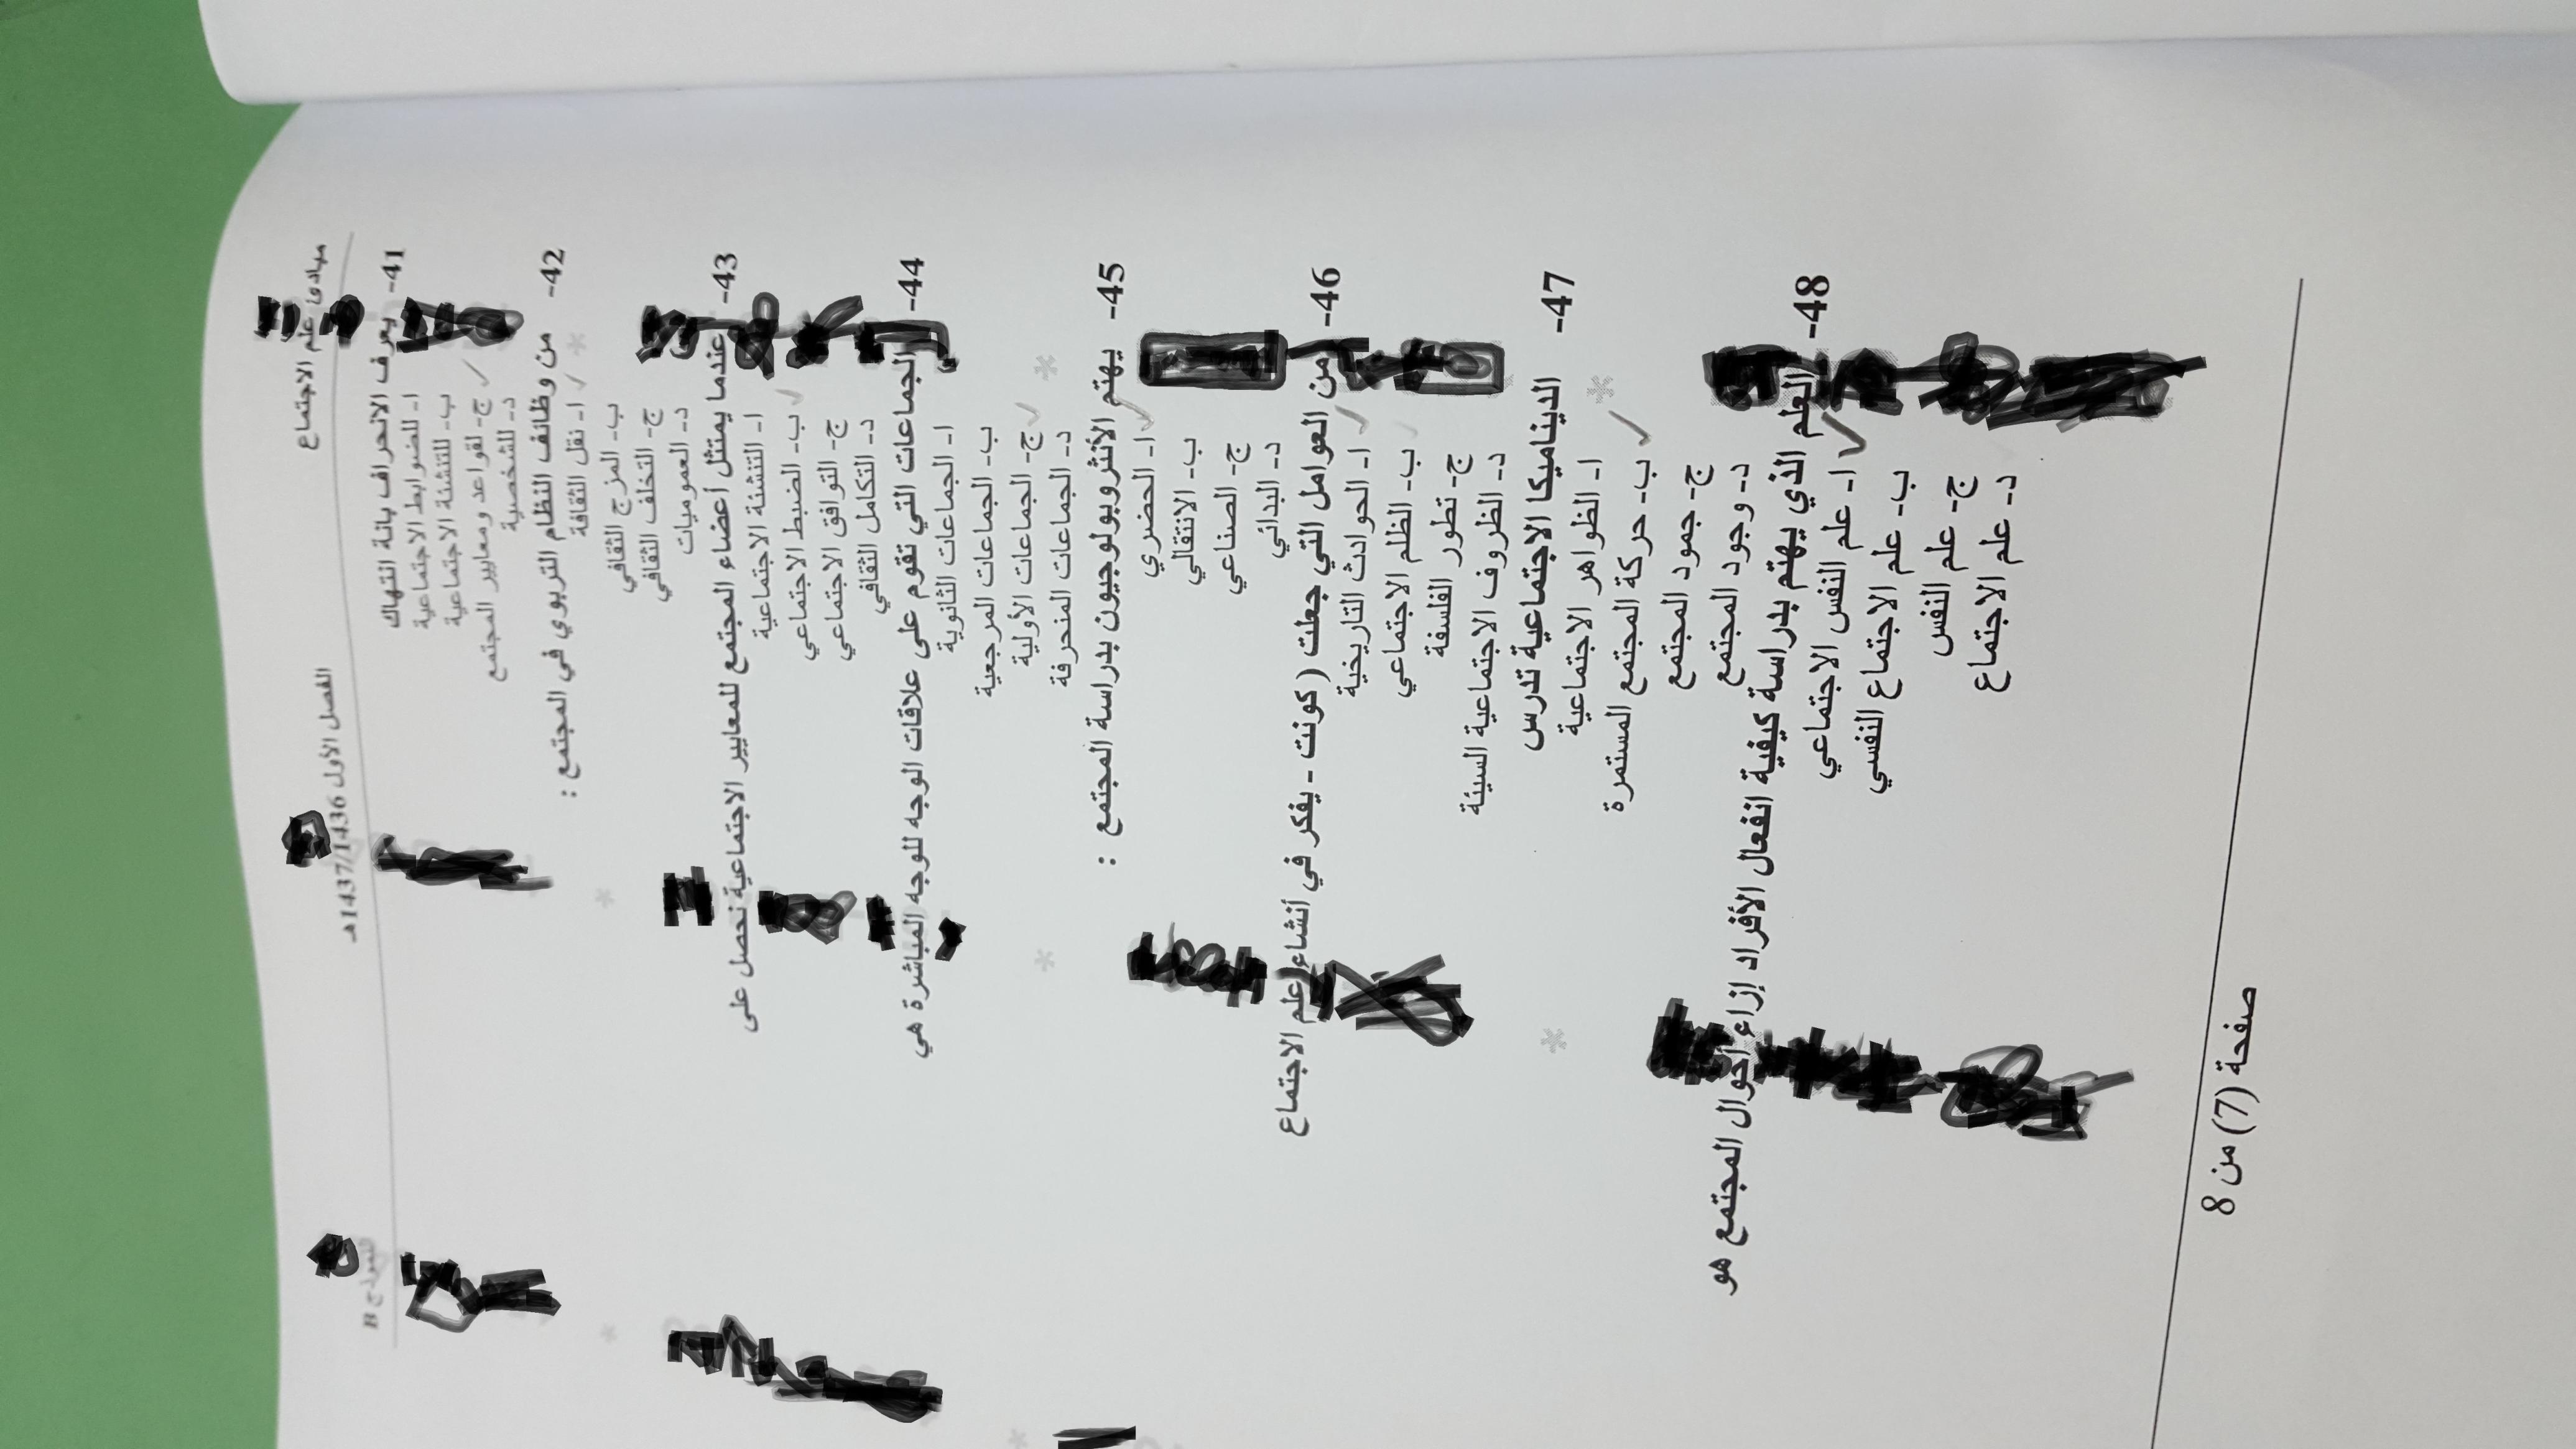 مبادئ علم الاجتماع الفصل الأول 1437/1436هـ نموذج B
41- يعرف الانحراف بانة انتهاك
ا- للضوابط الاجتماعية
ب- للتنشئة الاجتماعية
ج- لقواعد ومعايير المجتمع
د- للشخصية
42- من وظائف النظام التربوي في المجتمع :
ا- نقل الثقافة
ب- المزج الثقافي
ج- التخلف الثقافي
د- العموميات
43- عندما يمتثل أعضاء المجتمع للمعايير الاجتماعية نحصل على
ا- التنشئة الاجتماعية
ب- الضبط الاجتماعي
ج- التوافق الاجتماعي
د- التكامل الثقافي
44- الجماعات التي تقوم على علاقات الوجه للوجه المباشرة هي
ا- الجماعات الثانوية
ب- الجماعات المرجعية
ج- الجماعات الأولية
د- الجماعات المنحرفة
45- يهتم الأنثروبولوجيون بدراسة المجتمع :
ا- الحضري
ب- الانتقالي
ج- الصناعي
د- البدائي
46- من العوامل التي جعلت ( كونت - يفكر في أنشاء علم الاجتماع
ا- الحوادث التاريخية
ب- الظلم الاجتماعي
ج- تطور الفلسفة
د- الظروف الاجتماعية السيئة
47- الديناميكا الاجتماعية تدرس
ا- الظواهر الاجتماعية
ب- حركة المجتمع المستمرة
ج- جمود المجتمع
د- وجود المجتمع
48- العلم الذي يهتم بدراسة كيفية انفعال الأفراد إزاء أحوال المجتمع هو
ا- علم النفس الاجتماعي
ب- علم الاجتماع النفسي
ج- علم النفس
د- علم الاجتماع
صفحة (7) من 8